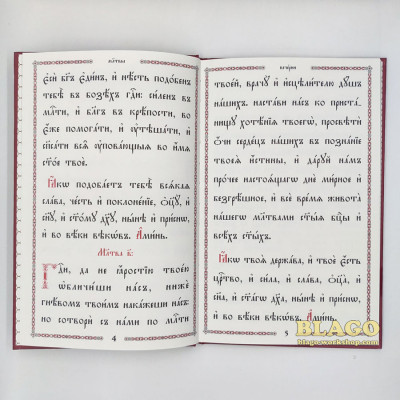 мл҃твы
є҆сѝ бг҃ъ є҆ди́нъ, и҆ нѣ́сть подо́бенъ
тебѣ̀ въ бозѣ́хъ гдⷭ҇и: си́ленъ въ
ми́лти, и҆ бл҃гъ въ крѣ́пости, во
є҆́же помога́ти, и҆ ᲂу҆тѣша́ти, и҆
сп҃са́ти всѧ̑ ᲂу҆пова́ющыѧ во и҆́мѧ
ст҃о́е твоѐ.
Ꙗ҆́кѡ подоба́етъ тебѣ̀ всѧ́каѧ
сла́ва, че́сть и҆ поклоне́нїе, ѻ҆ц҃ꙋ̀, и҆
сн҃ꙋ, и҆ ст҃о́мꙋ дх҃ꙋ, ны́нѣ и҆ при́снѡ,
и҆ во вѣ́ки вѣкѡ́въ. А҆ми́нь.
Мл҃тва в҃:
Гдⷭ҇и, да не ꙗ҆́ростїю твое́ю
ѡ҆бличи́ши на́съ, нижѐ
гнѣ́вомъ твои́мъ нака́жеши на́съ:
но сотворѝ съ на́ми по ми́лти
4
вече́рни
твое́й, врачꙋ̀ и҆ и҆сцѣли́телю дꙋ́шъ
на́шихъ. наста́ви на́съ ко приста́-
нищꙋ хотѣ́нїѧ твоегѡ̀, просвѣтѝ
ѻ҆́чи серде́цъ на́шихъ въ позна́нїе
твоеѧ̀ и҆́стины, и҆ да́рꙋй на́мъ
про́чее настоѧ́щагѡ днѐ ми́рное и҆
безгрѣ́шное, и҆ всѐ вре́мѧ живота̀
на́шегѡ мл҃твами ст҃ы́ѧ бц҃ы и҆
всѣ́хъ ст҃ы́хъ.
Ꙗ҆́кѡ твоѧ̀ держа́ва, и҆ твоѐ є҆́сть
црⷭ҇тво, и҆ си́ла, и҆ сла́ва, ѻ҆ц҃а̀, и҆
сн҃а, и҆ ст҃а́гѡ дх҃а, ны́нѣ и҆ при́снѡ,
и҆ во вѣ́ки вѣкѡ́въ. А҆ми́нь.
5
BLAGO
blago-workshop.com